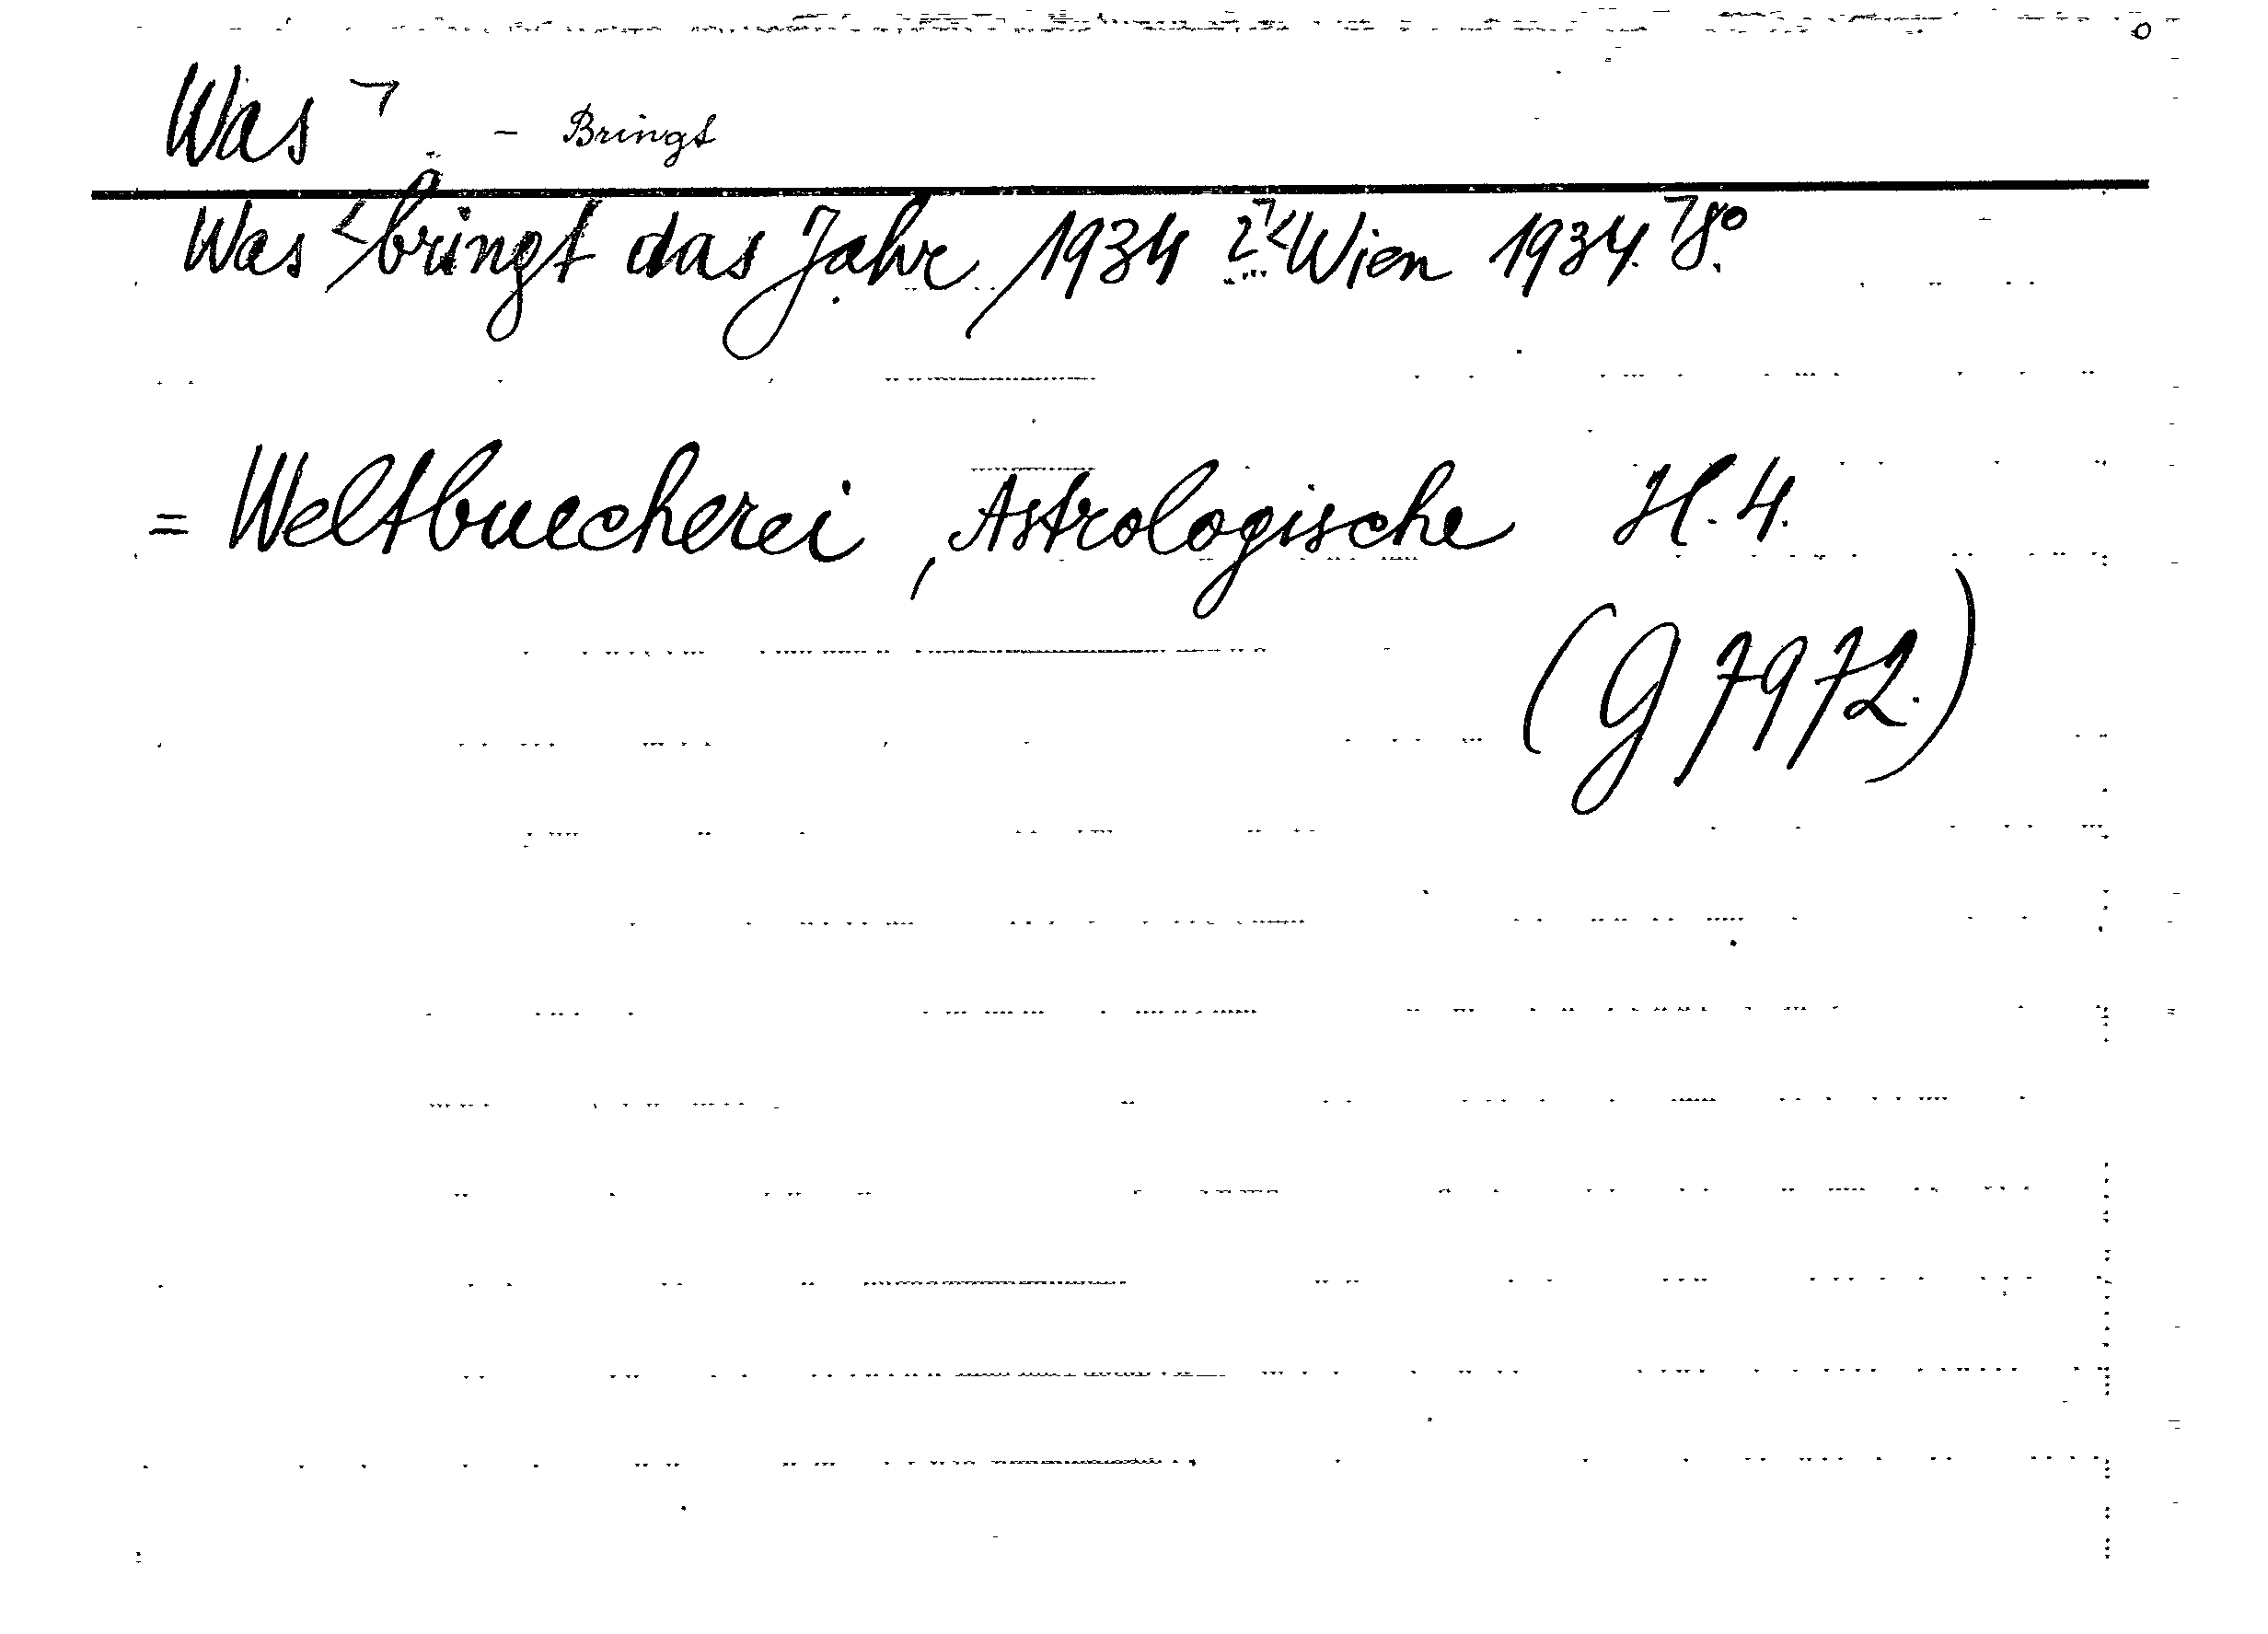 Was ¬ - Bringt
Was <bringt das Jahr 1934 ?¬< Wien 1934. ¬8°.
= Weltbuecherei, Astrologische H. 4.
(G 7972.)